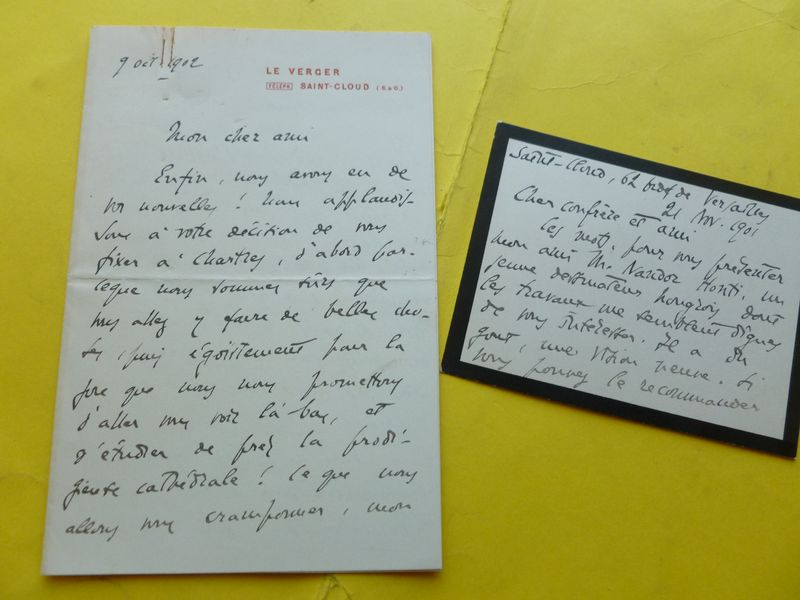 9 oct 1902
LE VERGER
TÉLÉPH. SAINT-CLOUD (S.&O.)
Mon cher ami
Enfin, nous avons eu de
vos nouvelles ! Nous applaudis-
sons à votre décision de vous
fixer à Chartres, d'abord par-
ceque nous sommes sûrs que
vous allez y faire de belles cho-
ses, puis égoïstement pour la
joie que nous nous promettons
d'aller vous voir là-bas, et
d'étudier de près la prodi-
gieuse cathédrale ! Ce que nous
allons vous cramponner, mon
Saint-Cloud, 62 de Versailles
21 Nov. 1901
Cher confrère et ami
Ces mots, pour vous présenter
mon ami M. Nandor Honti, un
jeune dessinateur hongrois dont
les travaux me semblent dignes
de vous intéresser. Il a du
goût, une vision neuve. Si
vous pouvez le recommander